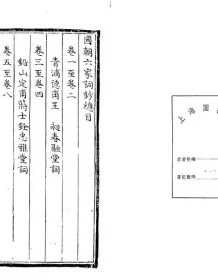 國朝六家詞鈔總目
卷一至卷二
青浦德甫王昶春融堂詞
卷三至卷四
鉛山定甫蔣士銓忠雅堂詞
卷五至卷八